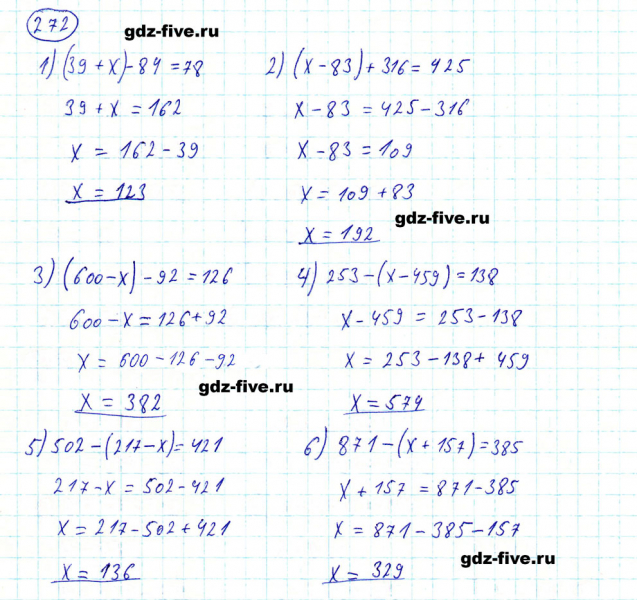 272
gdz-five.ru
1) (39 + x) - 84 = 78
39 + x = 162
x = 162 - 39
x = 123
2) (x - 83) + 316 = 425
x - 83 = 425 - 316
x - 83 = 109
x = 109 + 83
gdz-five.ru
x = 192
3) (600 - x) - 92 = 126
600 - x = 126 + 92
x = 600 - 126 - 92
gdz-five.ru
x = 382
4) 253 - (x - 459) = 138
x - 459 = 253 - 138
x = 253 - 138 + 459
x = 574
5) 502 - (217 - x) = 421
217 - x = 502 - 421
x = 217 - 502 + 421
x = 136
6) 871 - (x + 157) = 385
x + 157 = 871 - 385
x = 871 - 385 - 157
gdz-five.ru
x = 329